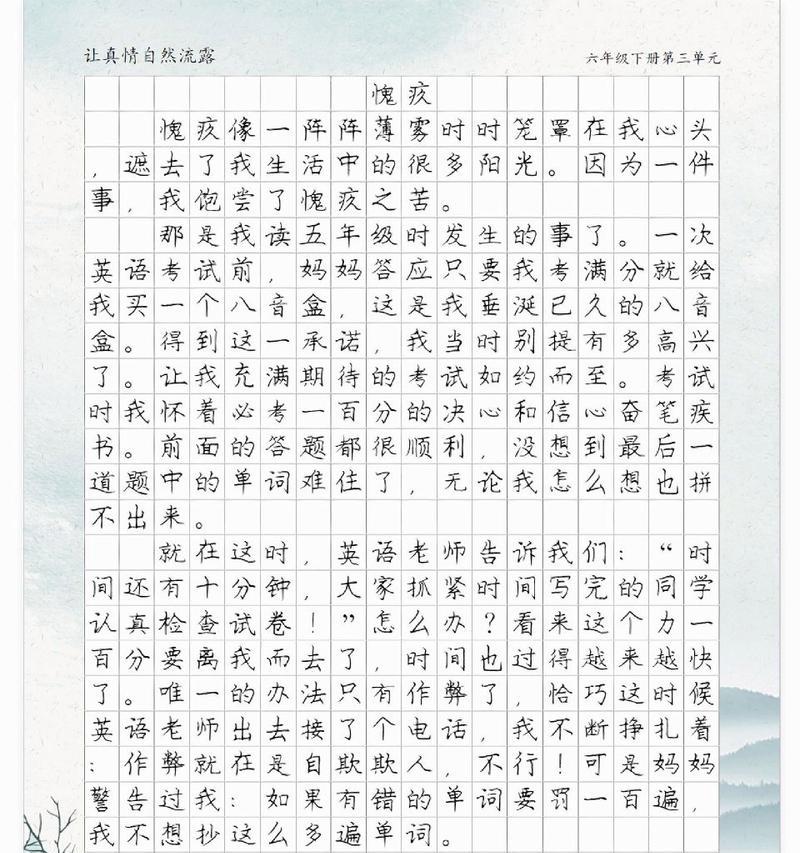 让真情自然流露
六年级下册第三单元
愧疚
愧疚像一阵阵薄雾时时笼罩在我心头
，遮去了我生活中的很多阳光。因为一件
事，我饱尝了愧疚之苦。
那是我读五年级时发生的事了。一次
英语考试前，妈妈答应只要我考满分就给
我买一个八音盒，这是我垂涎已久的八音
盒。得到这一承诺，我当时别提有多高兴
了。让我充满期待的考试如约而至。考试
时我怀着必考一百分的决心和信心奋笔疾
书。前面的答题都很顺利，没想到最后一
道题中的单词难住了，无论我怎么想也拼
不出来。
就在这时，英语老师告诉我们：“时
间还有十分钟，大家抓紧时间写完的同学
认真检查试卷！”怎么办？看来这个力一
百分要离我而去了，时间也过得越来越快
了。唯一的办法只有作弊了，恰巧这时候
英语老师出去接了个电话，我不断挣扎着
：作弊就在是自欺欺人，不行！可是妈妈
警告过我：如果有错的单词要罚一百遍，
我不想抄这么多遍单词。